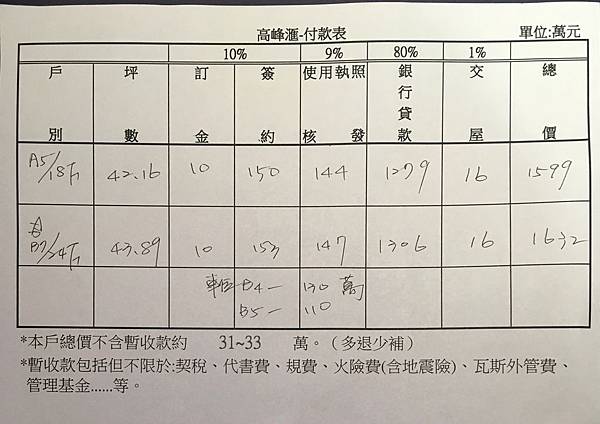 高峰滙-付款表 單位:萬元
10% 9% 80% 1%
戶別 坪數 訂金 簽約 使用執照核發 銀行貸款 交屋 總價
A5/18F 42.16 10 150 144 1279 16 1599
B7/24F 43.89 10 153 147 1306 16 1632
車位 B4- 130萬
B5- 110
*本戶總價不含暫收款約 31~33 萬。（多退少補）
*暫收款包括但不限於:契稅、代書費、規費、火險費(含地震險)、瓦斯外管費、
管理基金......等。